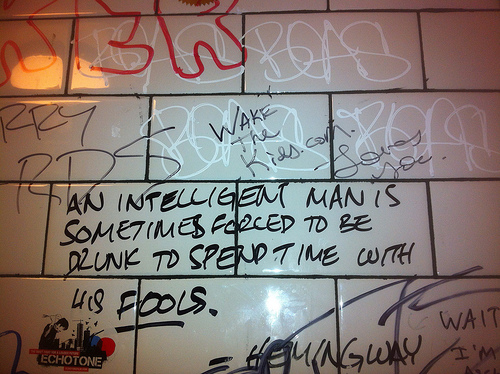 BOAS
BOAS
RRY
RDS
WAKE
The
Kids.com.
Loves
you.
AN INTELLIGENT MAN IS
SOMETIMES FORCED TO BE
DRUNK TO SPEND TIME WITH
HIS FOOLS.
- HEMINGWAY
ECHOTONE
WAIT
I'M